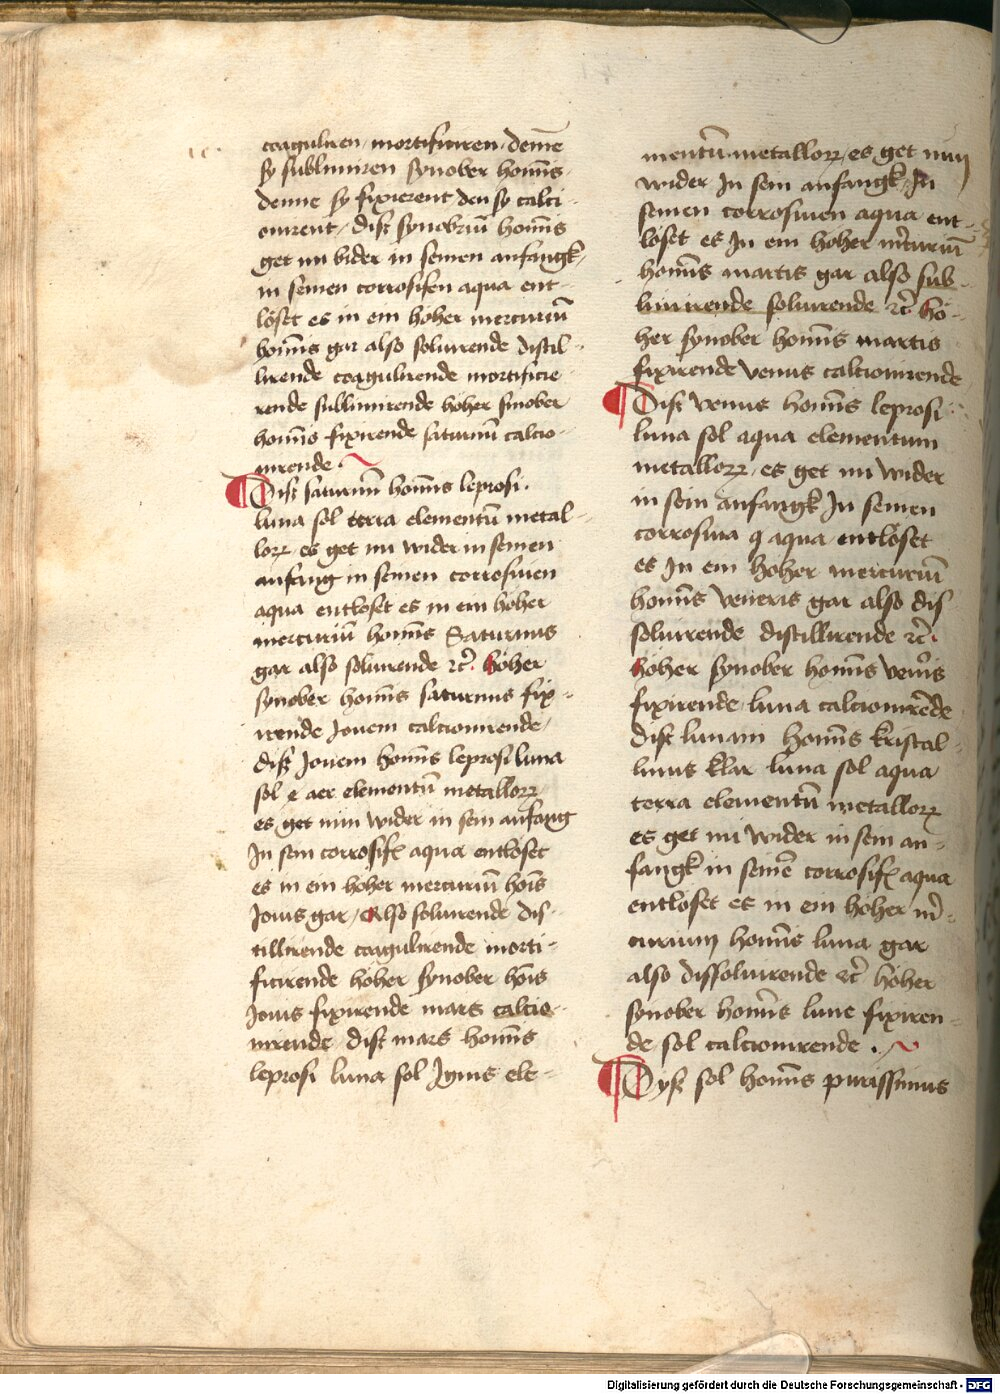 coagulirn / mortificirn / deme
sy sublimiren synober homis
denne sy fixierent den sy calci
onirent / dis synobriū homīs
get im bider in seinen anfangk /
in seinen corrosifen aqua ent
löset es in ein hoher mercuriū
homīs gar also soluirende distil
lirende coagulirende mortificie
rende sublimirende hoher sinober
homīs fixirende saturnū calcio
nirende .
Disz saturnū homīs leprosi .
luna sol terra elementū metal
lorꝝ es get im wider in seinen
anfang in seinen corrosiuen
aqua entlöset es in ein hoher
mercuriū homīs Saturnus
gar also soluirende ꝛc̄ . höher
synober homīs saturnus fix
irende Jouem calcionirende /
disz Jouem homīs leprosi luna
sol ꝛ aer elementū metallorꝝ
es get im wider in sein anfang
In sein corrosif aqua entlöset
es in ein hoher mercuriū hoīs
Jouis gar / Also soluirende dis
tillirende coagulirende morti
ficirende höher synober hoīs
Jouis fixirende mars calcio
nirende / disz mars homīs
leprosi luna sol Ignis ele
mentū metallorꝝ / es get im
wider In sein anfangk / In
seinen corrosiuen aqua ent
löset es In ein hoher m̄curiū
homīs martis gar also sub
limirende soluirende ꝛc̄ hö
her synober homīs martis
fixirende venus calcionirende
Disz venus homīs leprosi
luna sol aqua elementum
metallorꝝ / es get im wider
in sein anfangk In seinen
corrosiua q aqua entlöset
es In ein hoher mercuriū
homīs veneris gar also dis
soluirende distillirende ꝛc̄ .
höher synober homīs ven̄is
fixirende luna calcionirēde
disz lunam homīs kristal
linus klar luna sol aqua
terra elementū metallorꝝ
es get im wider in sein an
fangk in seinē corrosif aqua
entlöset es in ein hoher m̄
curium homīs luna gar
also dissoluirende ꝛc̄ höher
synober homīs lune fixiren
de sol calcionirende .
Dysz sol homīs purissimus
Digitalisierung gefördert durch die Deutsche Forschungsgemeinschaft - DFG